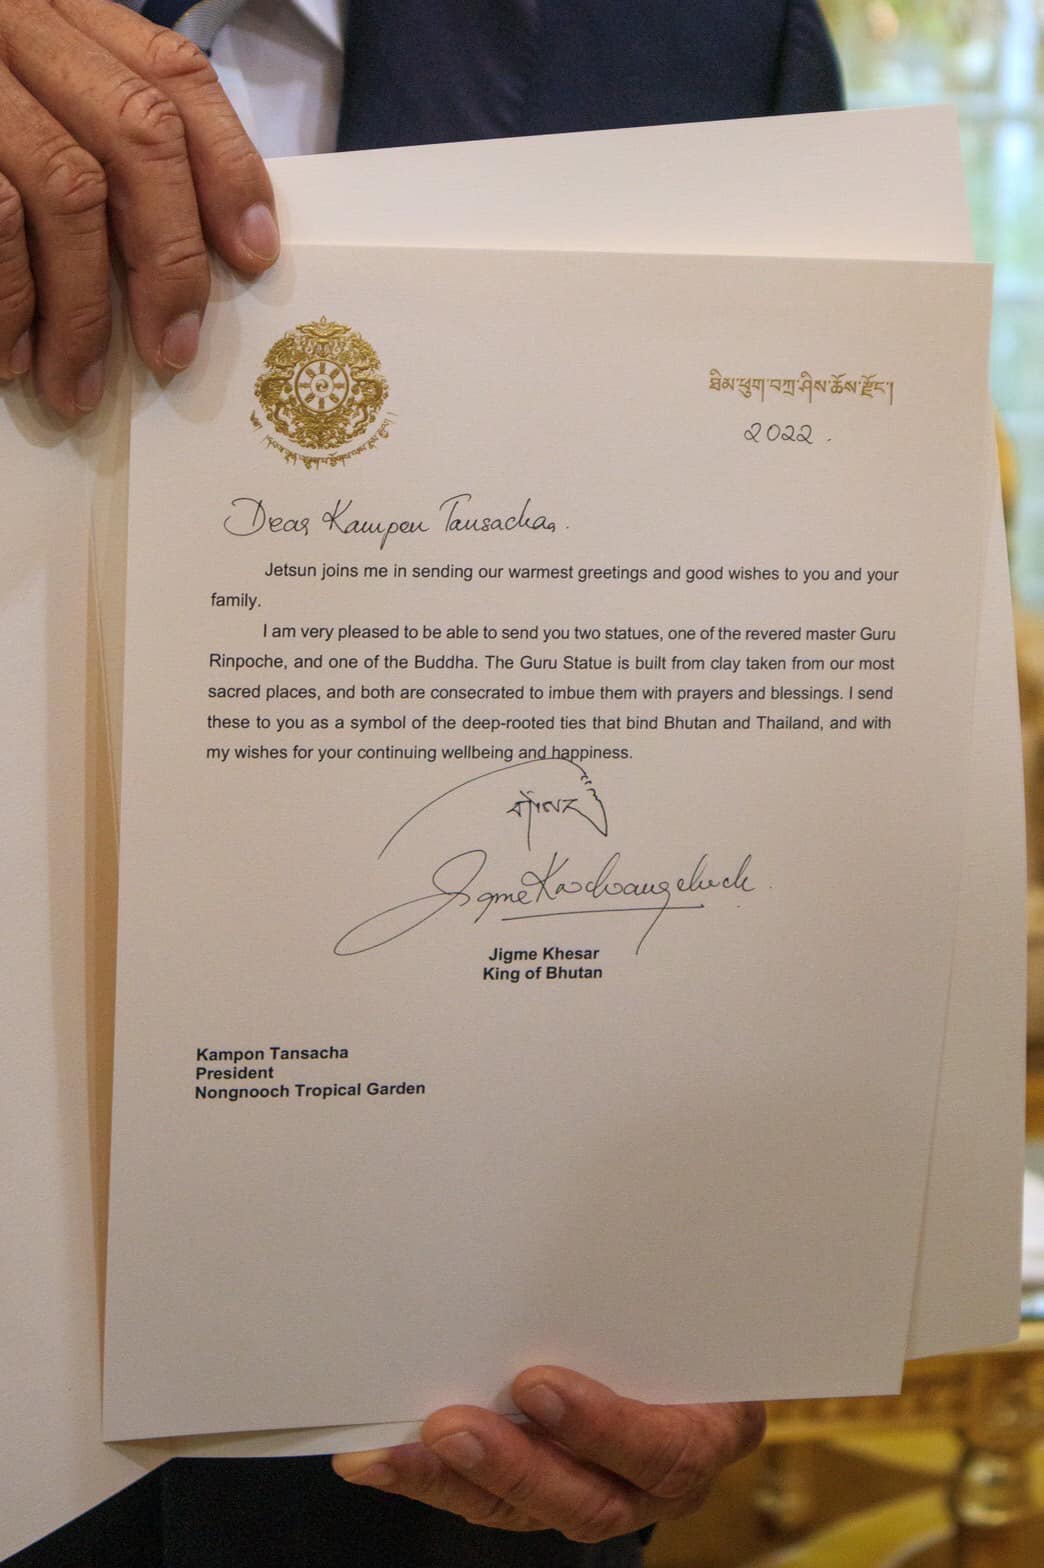 ཐིམ་ཕུག་བཀྲ་ཤིས་ཆོས་རྫོང་།
2022.
Dear Kampon Tansacha,
Jetsun joins me in sending our warmest greetings and good wishes to you and your
family.
I am very pleased to be able to send you two statues, one of the revered master Guru
Rinpoche, and one of the Buddha. The Guru Statue is built from clay taken from our most
sacred places, and both are consecrated to imbue them with prayers and blessings. I send
these to you as a symbol of the deep-rooted ties that bind Bhutan and Thailand, and with
my wishes for your continuing wellbeing and happiness.
Jigme Khesar
King of Bhutan
Kampon Tansacha
President
Nongnooch Tropical Garden